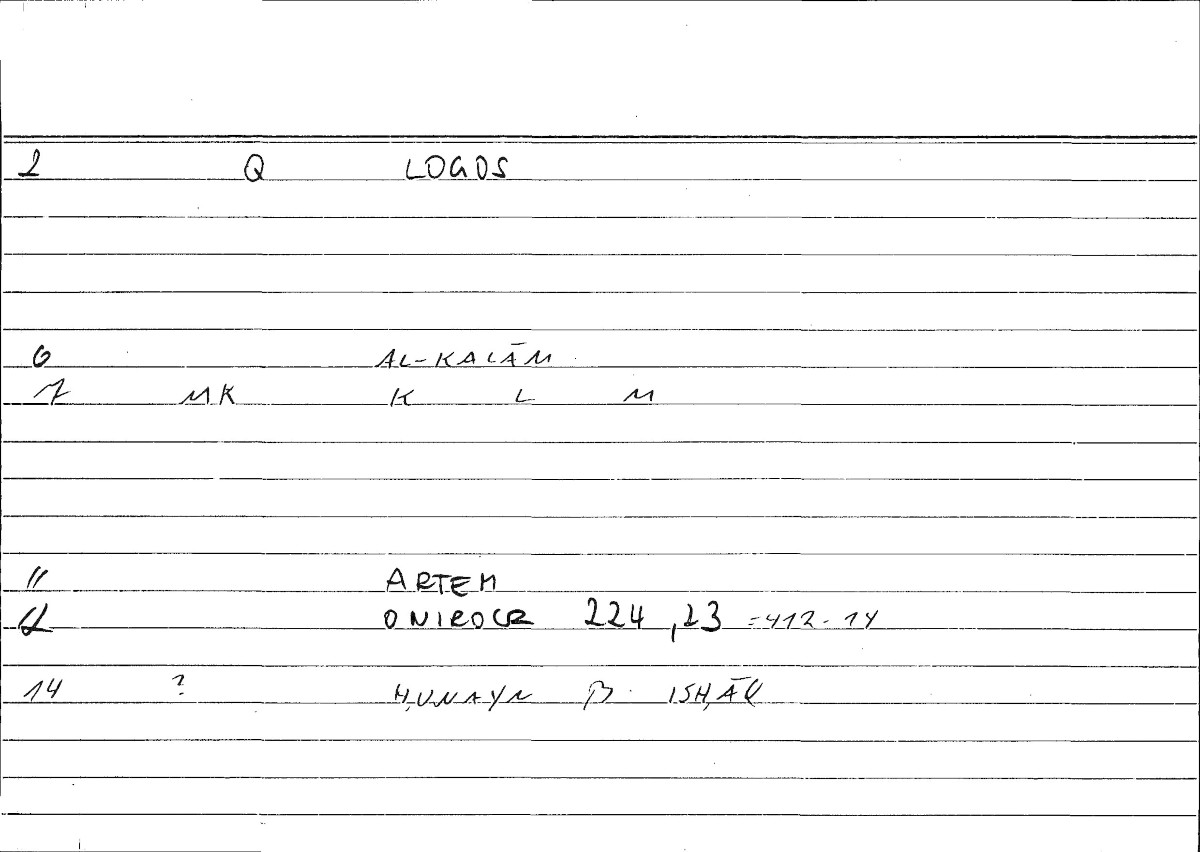 2 Q LOGOS
6 AL-KALĀM
7 MK K L M
11 ARTEM
12 ONIROCR 224,23 =412-14
14 ? ḤUNAYN B. ISḤĀQ